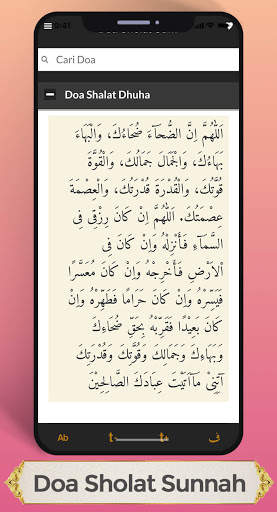 Cari Doa
Doa Shalat Dhuha
اَللّٰهُمَّ اِنَّ الضُّحَآءَ ضُحَاءُكَ، وَالْبَهَاءَ
بَهَاءُكَ، وَالْجَمَالَ جَمَالُكَ، وَالْقُوَّةَ
قُوَّتُكَ، وَالْقُدْرَةَ قُدْرَتُكَ، وَالْعِصْمَةَ
عِصْمَتُكَ. اَللّٰهُمَّ اِنْ كَانَ رِزْقِى فِى
السَّمَآءِ فَأَنْزِلْهُ وَاِنْ كَانَ فِى
اْلاَرْضِ فَأَخْرِجْهُ وَاِنْ كَانَ مُعَسَّرًا
فَيَسِّرْهُ وَاِنْ كَانَ حَرَامًا فَطَهِّرْهُ وَاِنْ
كَانَ بَعِيْدًا فَقَرِّبْهُ بِحَقِّ ضُحَاءِكَ
وَبَهَاءِكَ وَجَمَالِكَ وَقُوَّتِكَ وَقُدْرَتِكَ
آتِنِيْ مَآاٰتَيْتَ عِبَادَكَ الصَّالِحِيْنَ
Ab
ف
Doa Sholat Sunnah